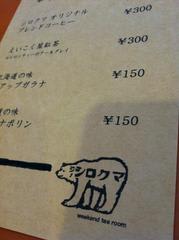 シロクマ オリジナル ¥300
ブレンドコーヒー
えいこく屋紅茶 ¥300
北海道の味 ¥150
アップガラナ
の味 ¥150
ナポリン
シロクマ
weekend tea room